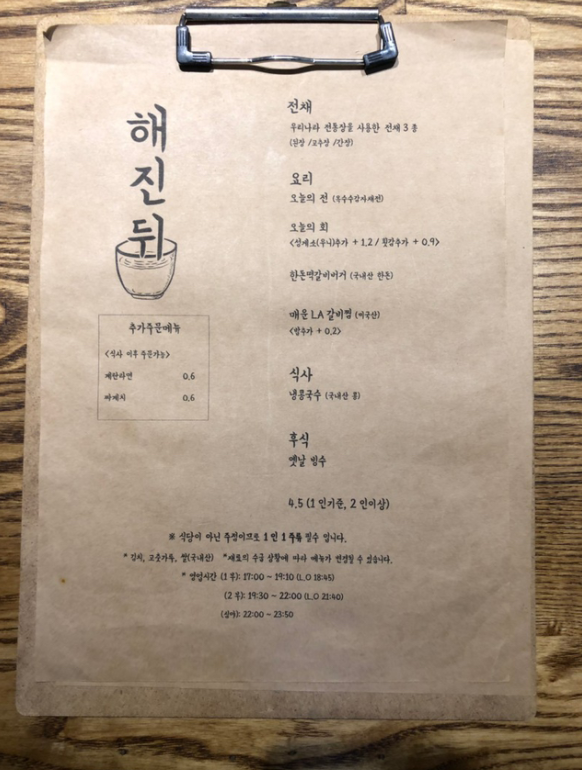 해진뒤
전채
우리나라 전통장을 사용한 전채 3 종
(된장 /고추장 /간장)
요리
오늘의 전 (옥수수감자채전)
오늘의 회
<성게소(우니)추가 + 1.2 / 횟감추가 + 0.9>
한돈떡갈비버거 (국내산 한돈)
매운 LA 갈비찜 (미국산)
<밥추가 + 0.2>
식사
냉콩국수 (국내산 콩)
후식
옛날 빙수
4.5 (1 인기준, 2 인이상)
추가주문메뉴
<식사 이후 주문가능>
계란라면 0.6
짜계치 0.6
※ 식당이 아닌 주점이므로 1 인 1 주류 필수 입니다.
* 김치, 고춧가루, 쌀(국내산) *재료의 수급 상황에 따라 메뉴가 변경될 수 있습니다.
* 영업시간 (1 부): 17:00 ~ 19:10 (L.O 18:45)
(2 부): 19:30 ~ 22:00 (L.O 21:40)
(심야): 22:00 ~ 23:50